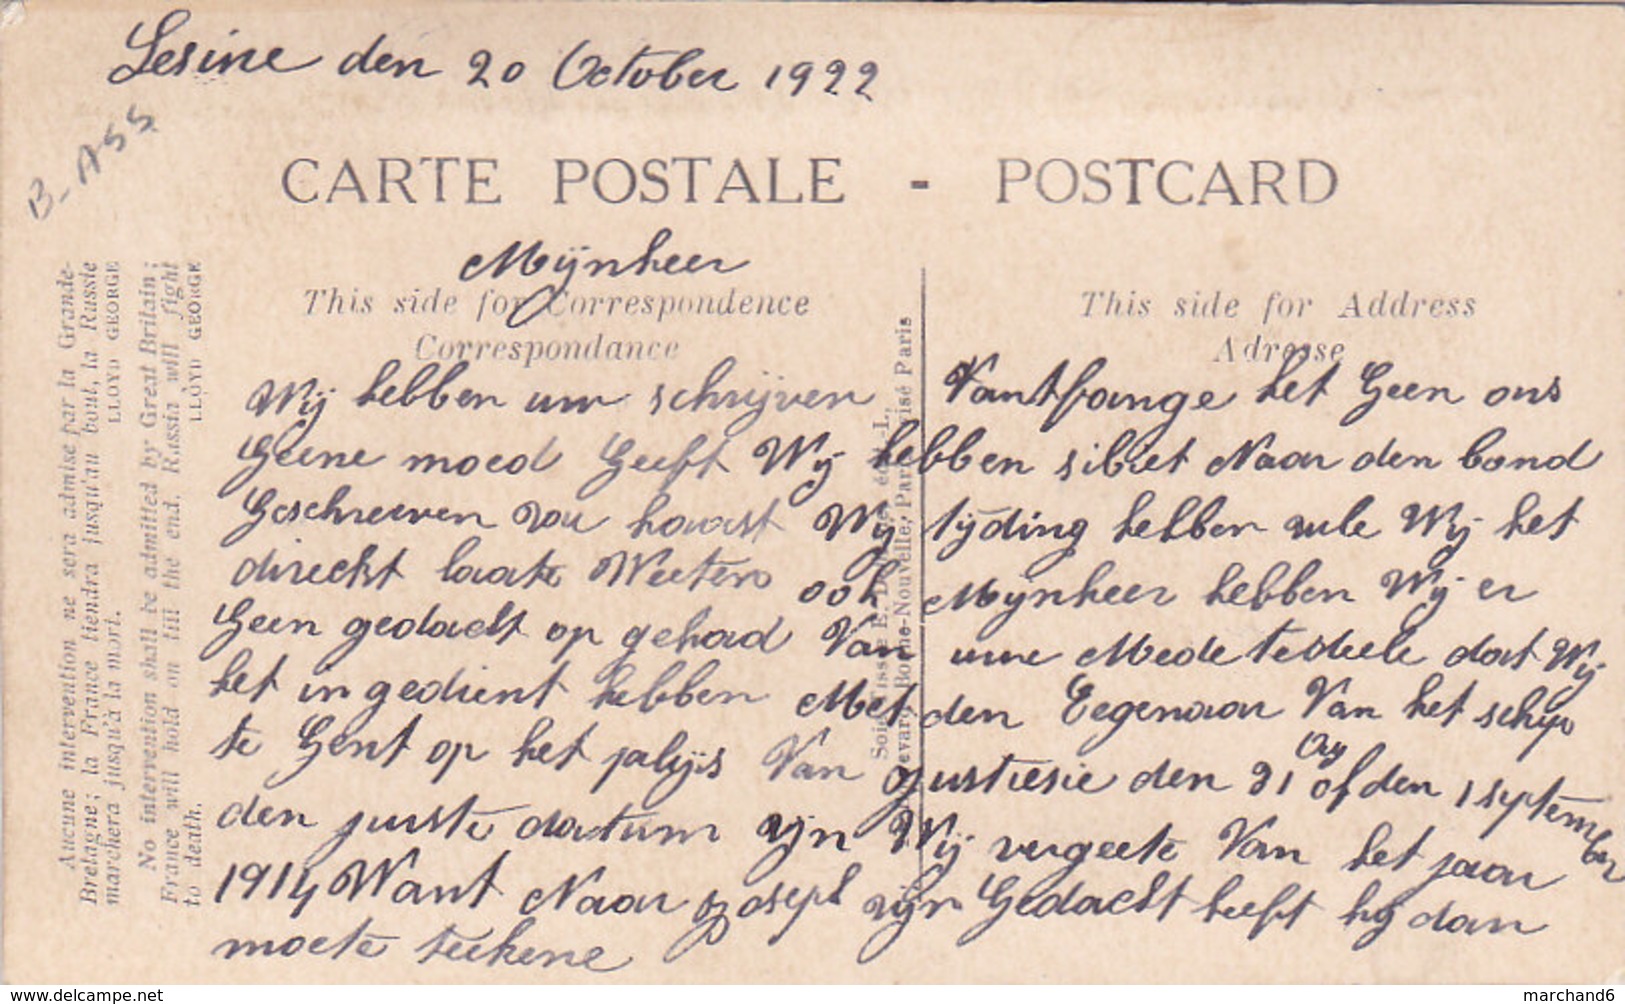 Lesine den 20 October 1922
B-ASS
CARTE POSTALE - POSTCARD
Mijnheer
This side for Correspondence
Correspondance
This side for Address
Adresse
Wij hebben uw schrijven Vantfange het Geen ons
Geene moed Geeft Wij hebben sibiet Naar den bond
Geschreeven zou haast Wij tijding hebben zule Wij het
direckt laate Weeten ook Mijnheer hebben Wij er
Geen gedacht op gehad Van uwe Mede tedeele dat Wij
het in gedient hebben Met den Eegenaar Van het schip
te Gent op het palijs Van Justiesie den 31 Oug of den 1 september
den juste datum zijn Wij vergeete Van het jaar
1914 Want Naar Joseph zijn Gedacht heeft hij dan
moete teekene
Aucune intervention ne sera admise par la Grande-
Bretagne; la France tiendra jusqu'au bout, la Russie
marchera jusqu'à la mort. LLOYD GEORGE
No intervention shall be admitted by Great Britain;
France will hold on till the end. Russia will fight
to death. LLOYD GEORGE
Visé Paris
Bonne-Nouvelle, Paris
marchand6